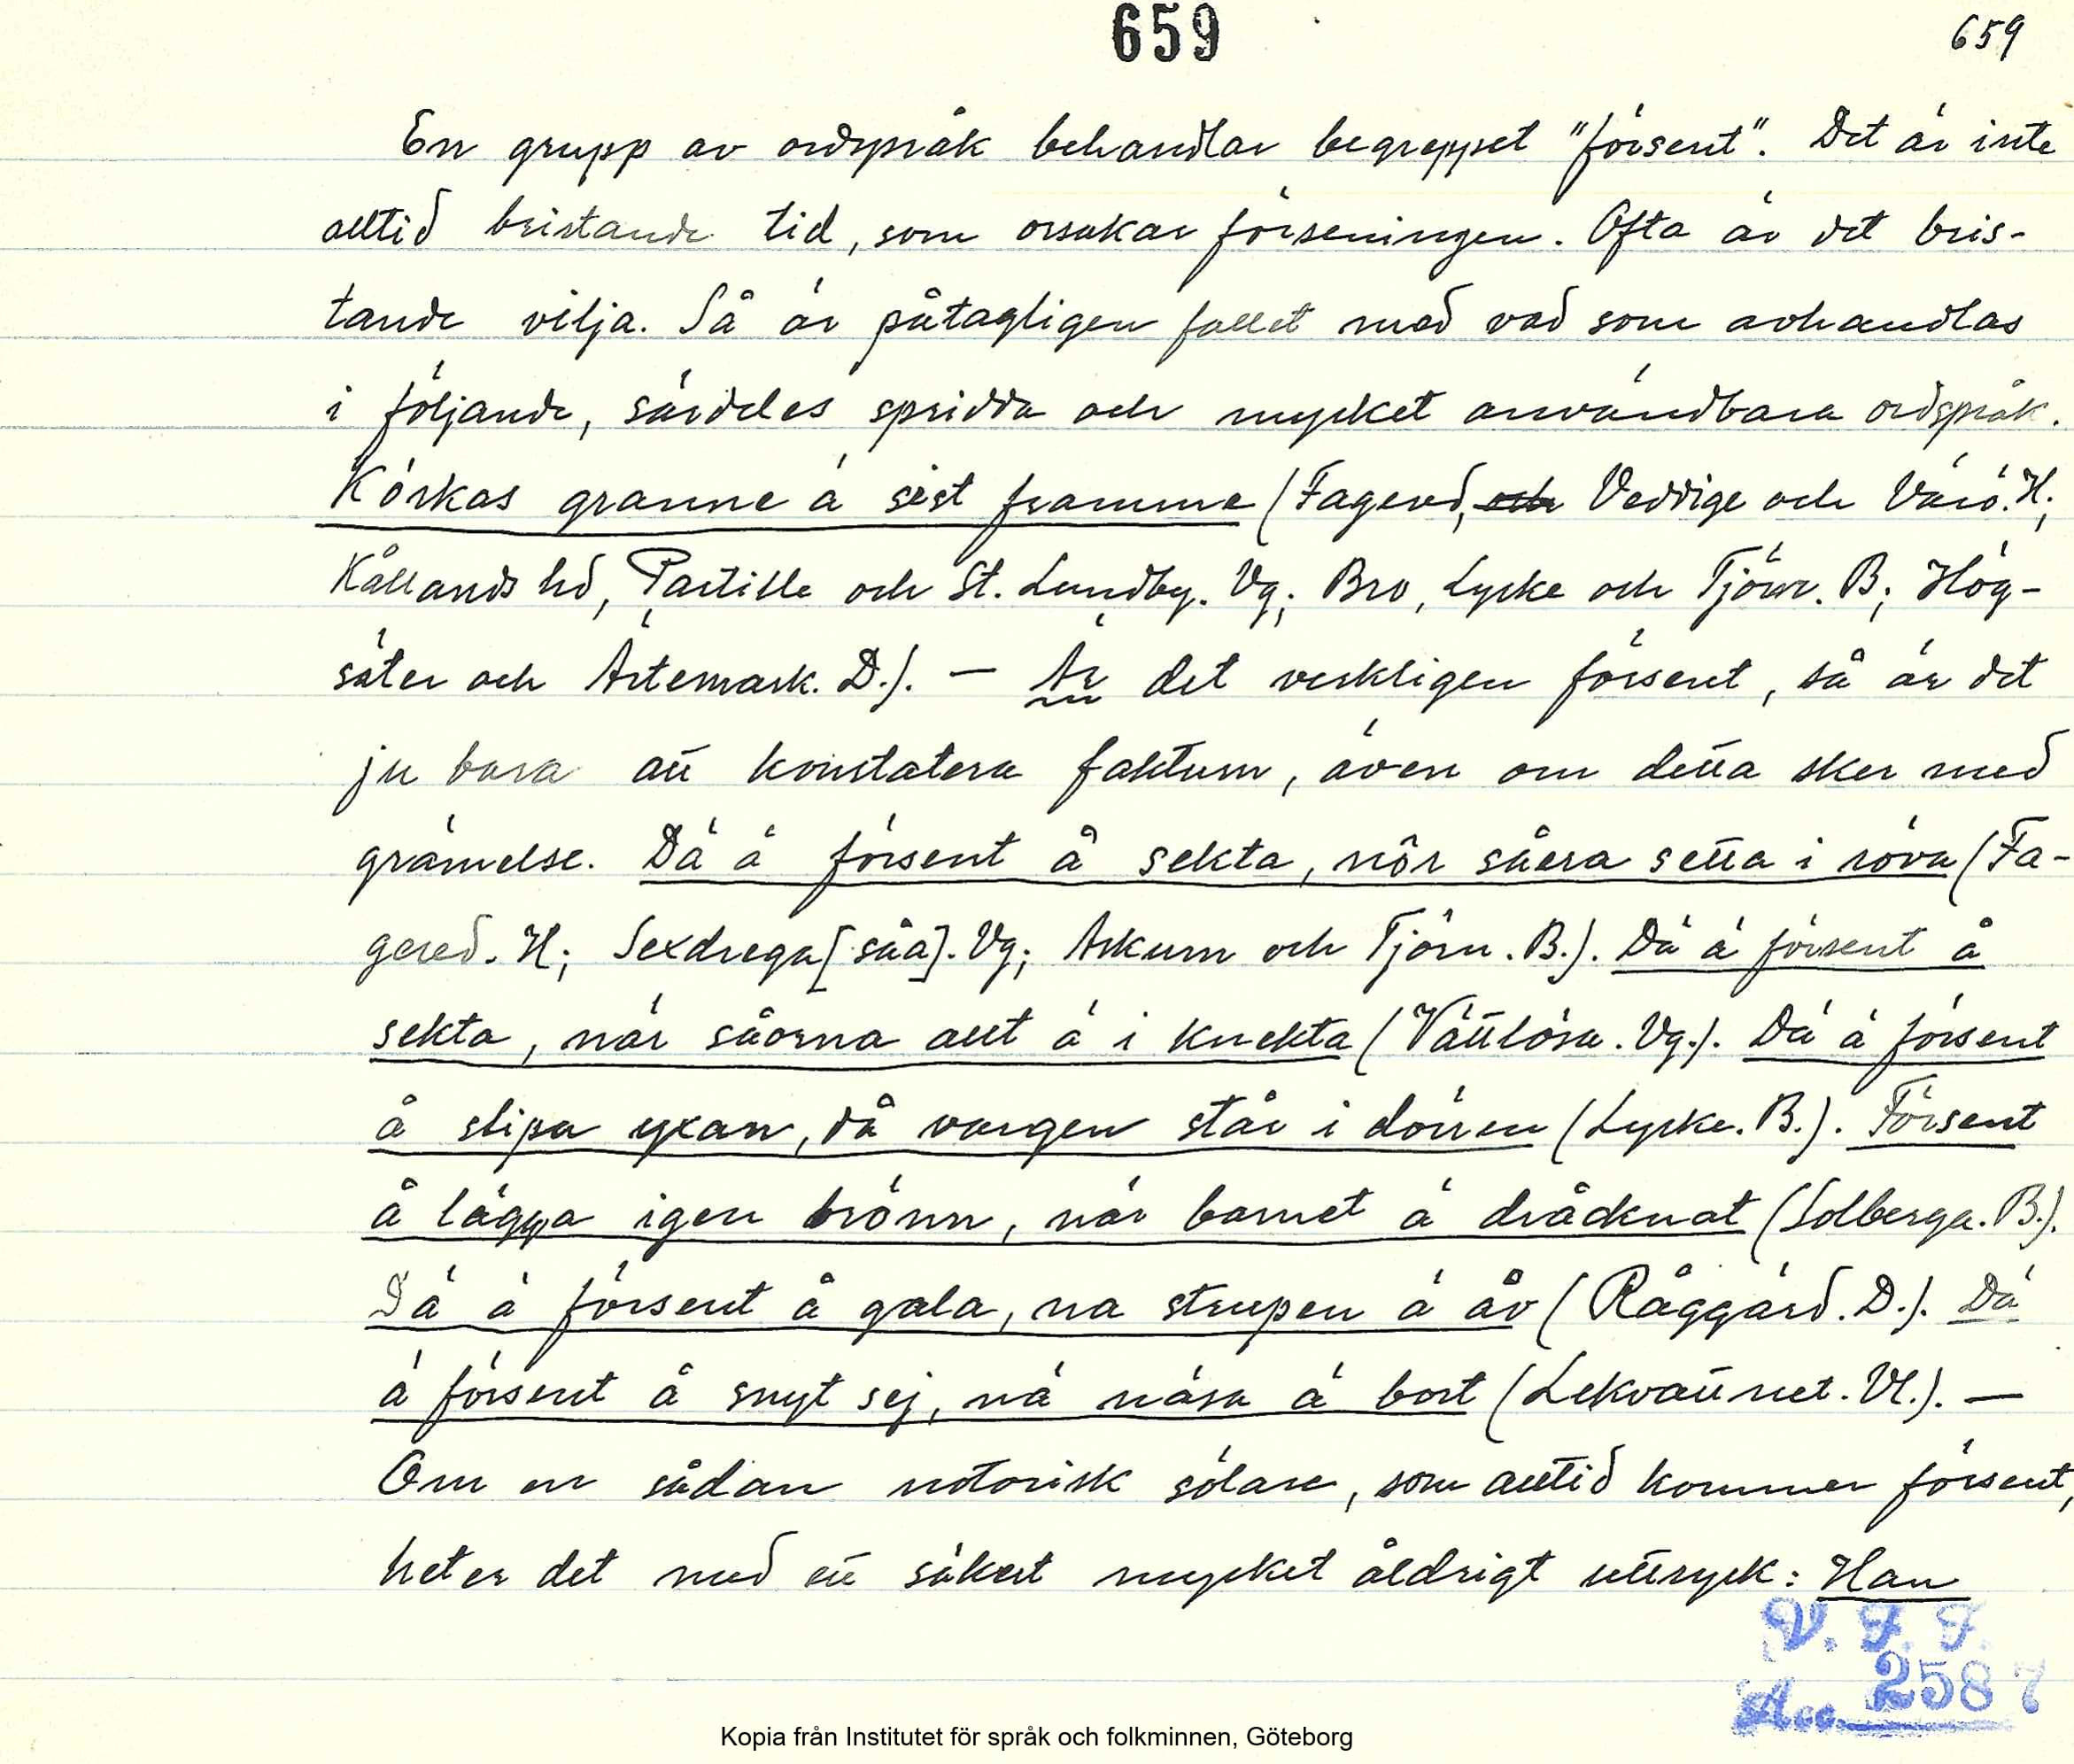 659
659
En grupp av ordspråk behandlar begreppet "försent". Det är inte
alltid bristande tid, som orsakar förseningen. Ofta är det bris-
tande vilja. Så är påtagligen fallet med vad som avhandlas
i följande, särdeles spridda och mycket användbara ordspråk.
Körkas granne ä sist framme (Fagered, och Veddige och Värö. H;
Kållands hd, Partille och St. Lundby. Vg; Bro, Lycke och Tjörn. B; Hög-
säter och Ärtemark. D.). — Är det verkligen försent, så är det
ju bara att konstatera faktum, även om detta sker med
grämelse. Dä ä försent å sekta, nör såera setta i röva (Fa-
gered. H; Sexdrega [såa]. Vg; Askum och Tjörn. B.). Dä ä försent å
sekta, när såorna allt ä i knekta (Vättlösa. Vg.). Dä ä försent
å slipa yxan, då vargen står i dörren (Lycke. B.). Försent
å lägga igen brönn, när barnet ä dråcknat (Solberga. B.).
Dä ä försent å gala, na strupen ä åv (Råggärd. D.). Dä
ä försent å snyt sej, nä näsa ä bort (Lekvattnet. Vl.). —
Om en sådan notorisk sölare, som alltid kommer försent,
heter det med ett säkert mycket åldrigt uttryck: Han
V. F. F.
Acc. 2587
Kopia från Institutet för språk och folkminnen, Göteborg